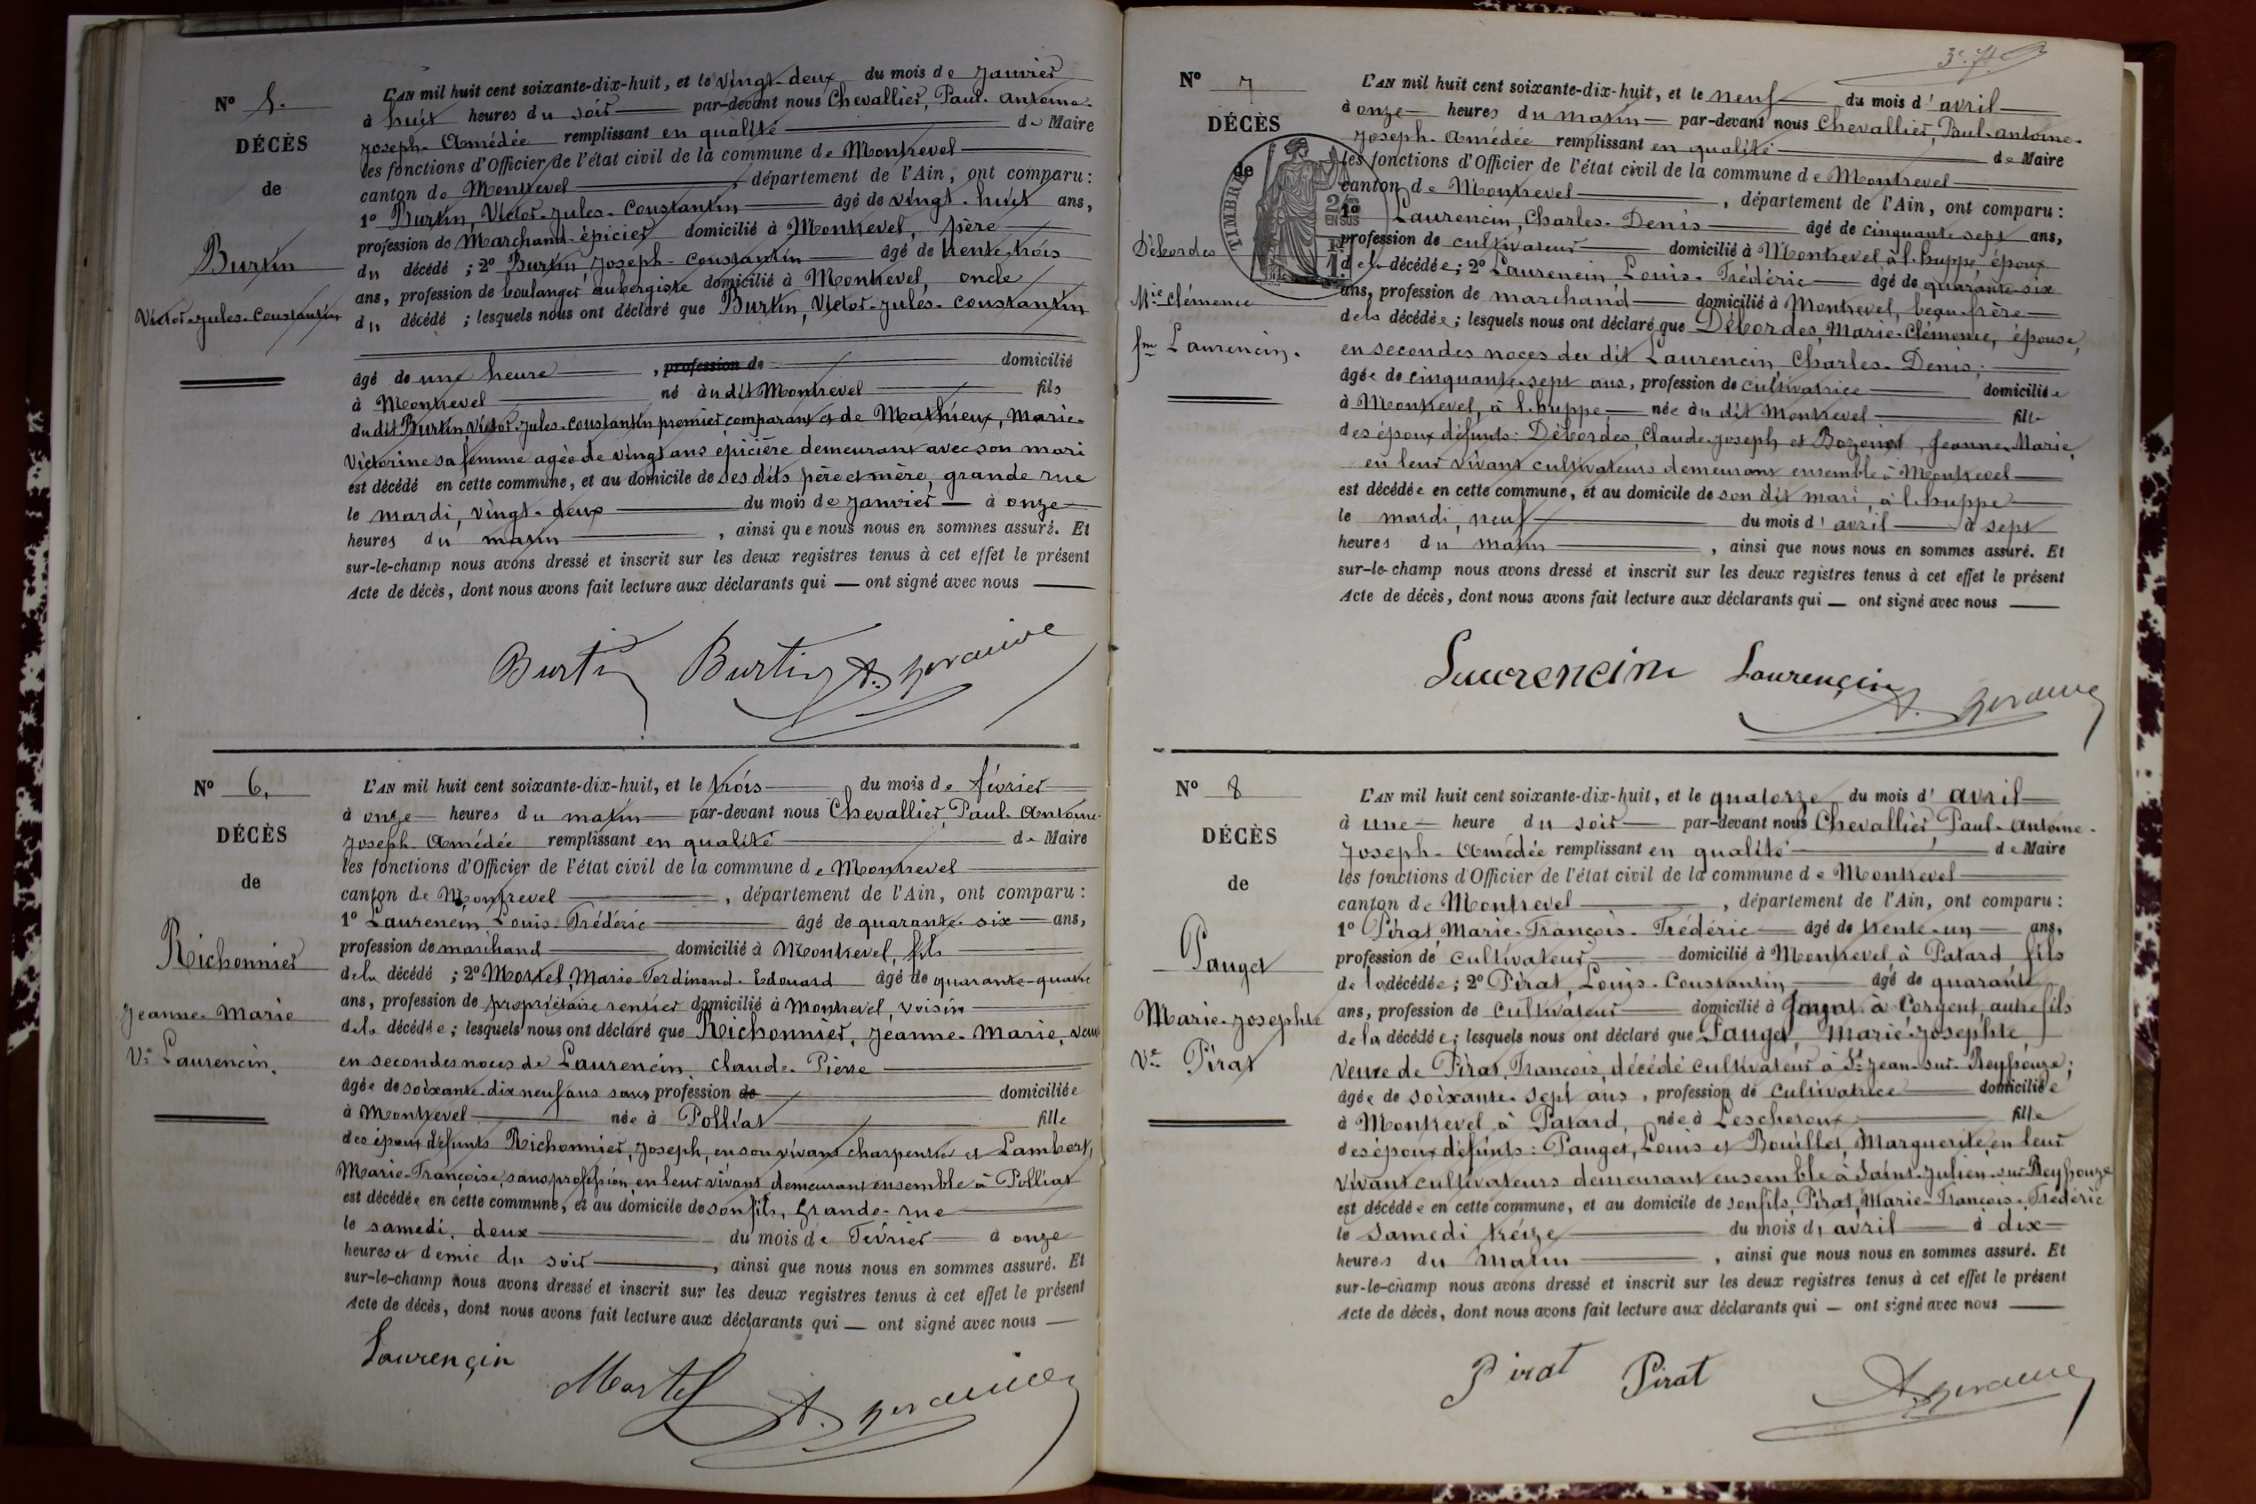 N° 5.
DÉCÈS
de
Burtin
Victor-Jules-Constantin
L'AN mil huit cent soixante-dix-huit, et le vingt-deux du mois de Janvier
à huit heures du soir par-devant nous Chevallier, Paul-Antoine-
Joseph-Amédée remplissant en qualité de Maire
les fonctions d'Officier de l'état civil de la commune de Montrevel
canton de Montrevel, département de l'Ain, ont comparu :
1° Burtin, Victor-Jules-Constantin âgé de vingt-huit ans,
profession de Marchand-épicier domicilié à Montrevel, père
du décédé ; 2° Burtin, Joseph-Constantin âgé de trente-trois
ans, profession de boulanger aubergiste domicilié à Montrevel, oncle
du décédé ; lesquels nous ont déclaré que Burtin, Victor-Jules-Constantin
âgé de une heure, profession de domicilié
à Montrevel né au dit Montrevel fils
du dit Burtin, Victor-Jules-Constantin premier comparant et de Mathieux, Marie-
Victorine sa femme agée de vingt ans épicière demeurant avec son mari
est décédé en cette commune, et au domicile de ses dits père et mère, grande rue
le mardi, vingt-deux du mois de Janvier à onze
heures du matin, ainsi que nous nous en sommes assuré. Et
sur-le-champ nous avons dressé et inscrit sur les deux registres tenus à cet effet le présent
Acte de décès, dont nous avons fait lecture aux déclarants qui — ont signé avec nous
Burtin Burtin
N° 6.
DÉCÈS
de
Richonnier
Jeanne-Marie
Ve Laurencin.
L'AN mil huit cent soixante-dix-huit, et le trois du mois de février
à onze heures du matin par-devant nous Chevallier, Paul-Antoine-
Joseph-Amédée remplissant en qualité de Maire
les fonctions d'Officier de l'état civil de la commune de Montrevel
canton de Montrevel, département de l'Ain, ont comparu :
1° Laurencin, Louis-Frédéric âgé de quarante-six ans,
profession de marchand domicilié à Montrevel, fils
de la décédé ; 2° Mortel, Marie-Ferdinand-Edouard âgé de quarante-quatre
ans, profession de propriétaire rentier domicilié à Montrevel, voisin
de la décédée ; lesquels nous ont déclaré que Richonnier, Jeanne-Marie, veuve
en secondes noces de Laurencin, Claude-Pierre
âgée de soixante-dix neuf ans sans profession de domiciliée
à Montrevel née à Polliat fille
des époux défunts Richonnier, Joseph, en son vivant charpentier et Lambert,
Marie-Françoise, sans profession, en leur vivant demeurant ensemble à Polliat
est décédée en cette commune, et au domicile de son fils, Grande-rue
le samedi, deux du mois de Février à onze
heures et demie du soir, ainsi que nous nous en sommes assuré. Et
sur-le-champ nous avons dressé et inscrit sur les deux registres tenus à cet effet le présent
Acte de décès, dont nous avons fait lecture aux déclarants qui — ont signé avec nous
Laurençin
Mortel
3e f
N° 7
DÉCÈS
de
TIMBRE
Débordes
Mie Clémence
fme Laurencin.
L'AN mil huit cent soixante-dix-huit, et le neuf du mois d'avril
à onze heures du matin par-devant nous Chevallier, Paul-Antoine-
Joseph-Amédée remplissant en qualité de Maire
les fonctions d'Officier de l'état civil de la commune de Montrevel
canton de Montrevel, département de l'Ain, ont comparu :
1° Laurencin, Charles-Denis âgé de cinquante-sept ans,
profession de cultivateur domicilié à Montrevel à l'huppe époux
de la décédée ; 2° Laurencin, Louis-Frédéric âgé de quarante-six
ans, profession de marchand domicilié à Montrevel, beau-frère
de la décédée ; lesquels nous ont déclaré que Débordes, Marie-Clémence, épouse,
en secondes noces du dit Laurencin Charles-Denis,
âgée de cinquante-sept ans, profession de cultivatrice domiciliée
à Montrevel, à l'huppe née au dit Montrevel fille
des époux défunts : Débordes, Claude-Joseph et Bozonnet, Jeanne-Marie,
en leur vivant cultivateurs demeurant ensemble à Montrevel
est décédée en cette commune, et au domicile de son dit mari, à l'huppe
le mardi, neuf du mois d'avril à sept
heures du matin, ainsi que nous nous en sommes assuré. Et
sur-le-champ nous avons dressé et inscrit sur les deux registres tenus à cet effet le présent
Acte de décès, dont nous avons fait lecture aux déclarants qui — ont signé avec nous
Laurencin Laurençin
N° 8
DÉCÈS
de
Pauget
Marie-Josephte
Ve Pirat
L'AN mil huit cent soixante-dix-huit, et le quatorze du mois d'avril
à une heure du soir par-devant nous Chevallier Paul-Antoine-
Joseph-Amédée remplissant en qualité de Maire
les fonctions d'Officier de l'état civil de la commune de Montrevel
canton de Montrevel, département de l'Ain, ont comparu :
1° Pirat, Marie-François-Frédéric âgé de trente-un ans,
profession de cultivateur domicilié à Montrevel, à Patard fils
de la décédée ; 2° Pirat, Louis-Constantin âgé de quarante
ans, profession de cultivateur domicilié à Jayat, à Corgent, autre fils
de la décédée ; lesquels nous ont déclaré que Pauget, Marie-Josephte,
Veuve de Pirat, François, décédé cultivateur à St Jean-sur-Reyssouze ;
âgée de soixante-sept ans, profession de cultivatrice domiciliée
à Montrevel à Patard, née à Lescheroux fille
des époux défunts : Pauget, Louis et Bouillet, Marguerite, en leur
vivant cultivateurs demeurant ensemble à Saint-Julien-sur-Reyssouze
est décédée en cette commune, et au domicile de son fils, Pirat, Marie-François-Frédéric
le Samedi treize du mois d'avril à dix
heures du matin, ainsi que nous nous en sommes assuré. Et
sur-le-champ nous avons dressé et inscrit sur les deux registres tenus à cet effet le présent
Acte de décès, dont nous avons fait lecture aux déclarants qui — ont signé avec nous
Pirat Pirat